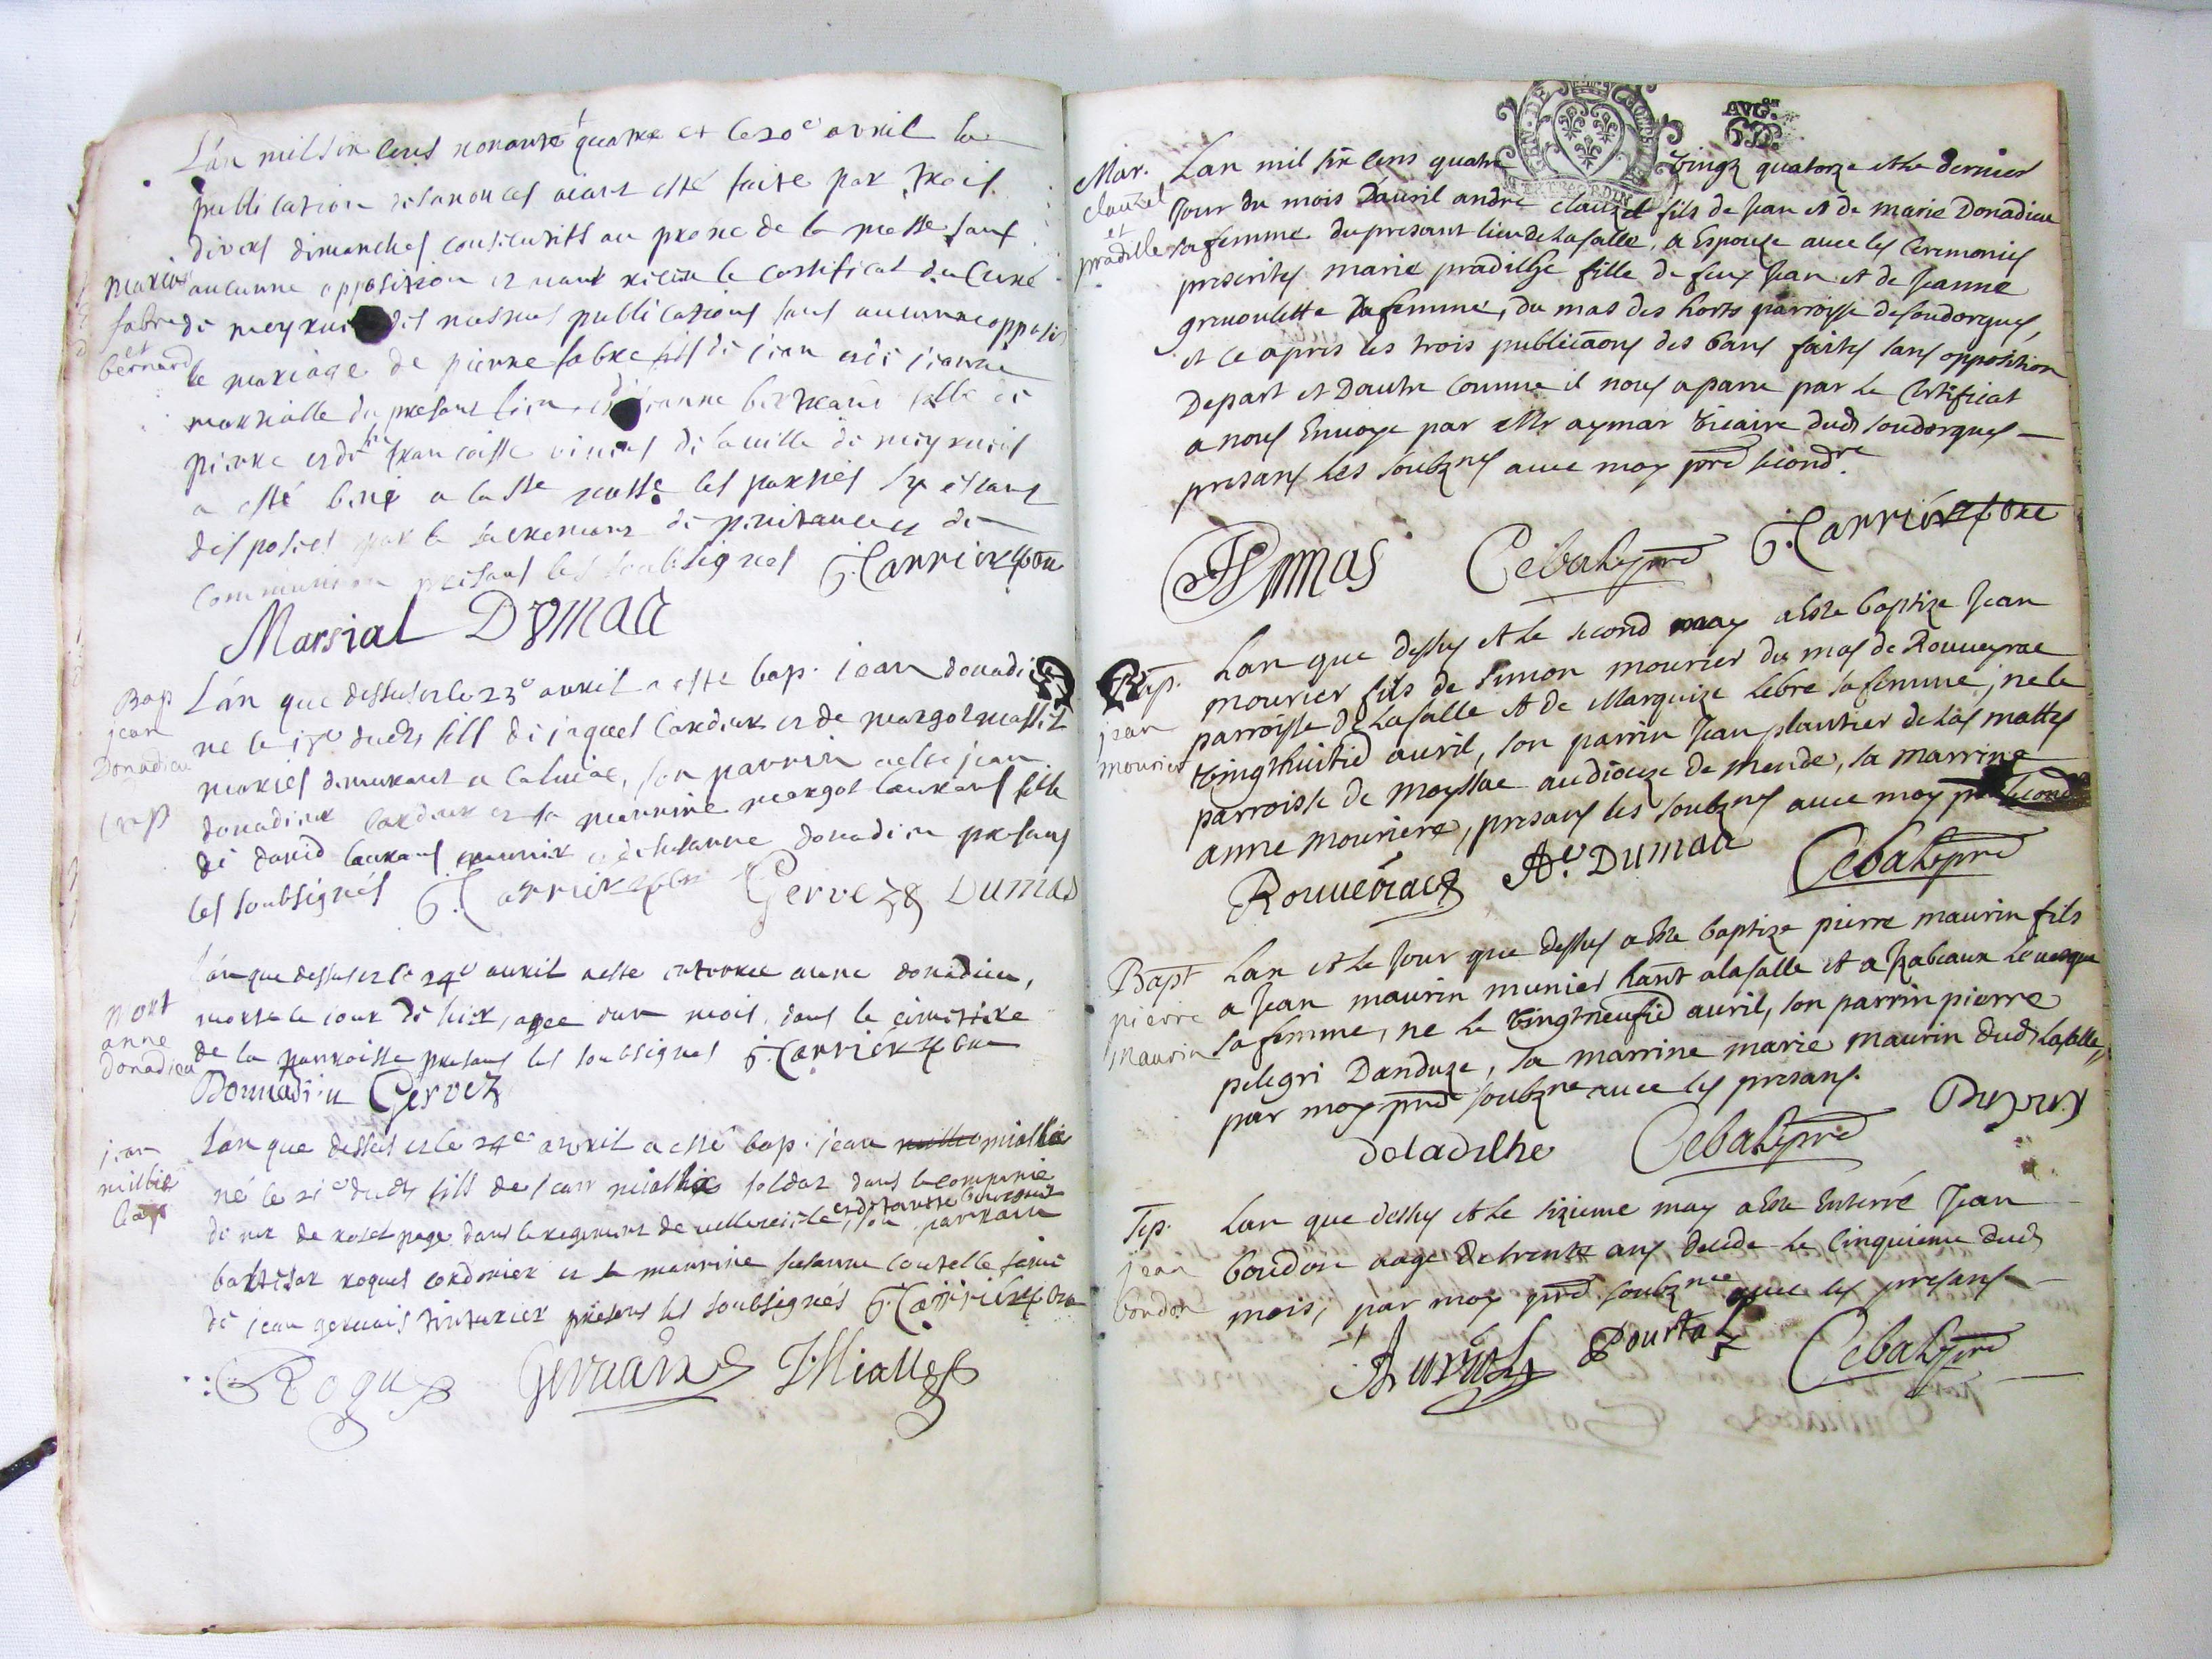 L'an mil six cens nonante quatre et le 20e avril la
publication des anonces aiant esté faite par trois
divers dimanches consecutifs au prosne de la messe sans
aucunne opposition et aiant receu le certificat du Curé
de meyrueis des mesmes publications sans aucunne opposi
le mariage de pierre fabre fils de jean et de jeanne
marsialle du presant lieu et de jeanne bernard fille de
pierre et de francoisse vincens de la ville de meyrueis
a esté beni a la Ste messe les parties sy estans
disposées par le sacremens de penitance et de
communion presans les soubsignes G. Carriere ptre
Marsial Dumas
mariage
fabre
et
bernard
L'an que dessus et le 23e avril a esté bap. jean donadieu
né le 17e dudt fils de jaques cardeur et de margot massit
mariés demeurant a calviac, son parrin a esté jean
donadieu cardeur et sa marrine margot laurans fille
de david laurans et de susanne donadieu presans
les soubsignés G. Carriere ptre Gervez Dumas
Bap
jean
Donadieu
L'an que dessus et le 24e avril a esté enterrée anne donadieu,
morte le jour de hier, agee dun mois, dans le cimetiere
de la parroisse presans les soubsignes G. Carriere ptre
Donnadieu Gervez
mort
anne
donadieu
Lan que dessus et le 24e avril a esté bap. jean miallie
né le 21e dudt fils de jean miallie soldat dans la compagnie
de mr de rosel page dans le regimens de son parrain
baltesar roques cordonier et sa marrine susanne coutelle feme
de jean gervais tinturier presens les soubsignés G. Carriere ptre
Roques Gervais J. Mialles
jean
millie
bap
AVG.on
6 D.
Mar.
clauzel
et
pradille
Lan mil six cens quatre vingt quatorze et le dernier
Jour du mois Dauril andre clauzel fils de Jean et de marie Donadieu
sa femme du presant lieu de Lasalle, a Espouze auec les Ceremonies
prescrites marie pradilhe fille de feux Jean et de Jeanne
greuoulette sa femme, du mas des horts parroisse de soudorgues,
et ce apres les trois publicaons des bans faites sans opposition
Depart et Dautre comme il nous a paru par le Certificat
a nous Enuoye par Mr aymar Vicaire dudt soudorgues
presans les soubznes auec moy prd secondre.
Thomas Cebalhprd G. Carriere ptre
Bap.
jean
mourier
Lan que dessus et le second may a este baptize Jean
mourier fils de simon mourier du mas de Rouueyrac
parroisse de Lasalle et de Marquize Lebre sa femme, ne le
vingthuitie auril, son parrin Jean plantier de Las mattes
parroisse de Moyssac au dioceze de mende, sa marrine
anne mouriere, presans les soubznes auec moy prd second
Rouueirac Ae. Dumas Cebalhprd
Bapt
pierre
maurin
Lan et le Jour que dessus a este baptize pierre maurin fils
a Jean maurin munier hant a lasalle et a Izabeaux Leuesque
sa femme, ne le vingtneufie auril, son parrin pierre
pelegri Danduze, sa marrine marie maurin dudt Lasalle,
par moy prd soubzne auec les presans.
deladilhe Cebalhprd Dupuy
Sep.
jean
boudon
Lan que dessus et le sizieme may a este Enterré Jean
boudon aage de trente ans, decede le Cinquieme dudt
mois, par moy prd soubzne auec les presans
Pourtal Cebalhprd